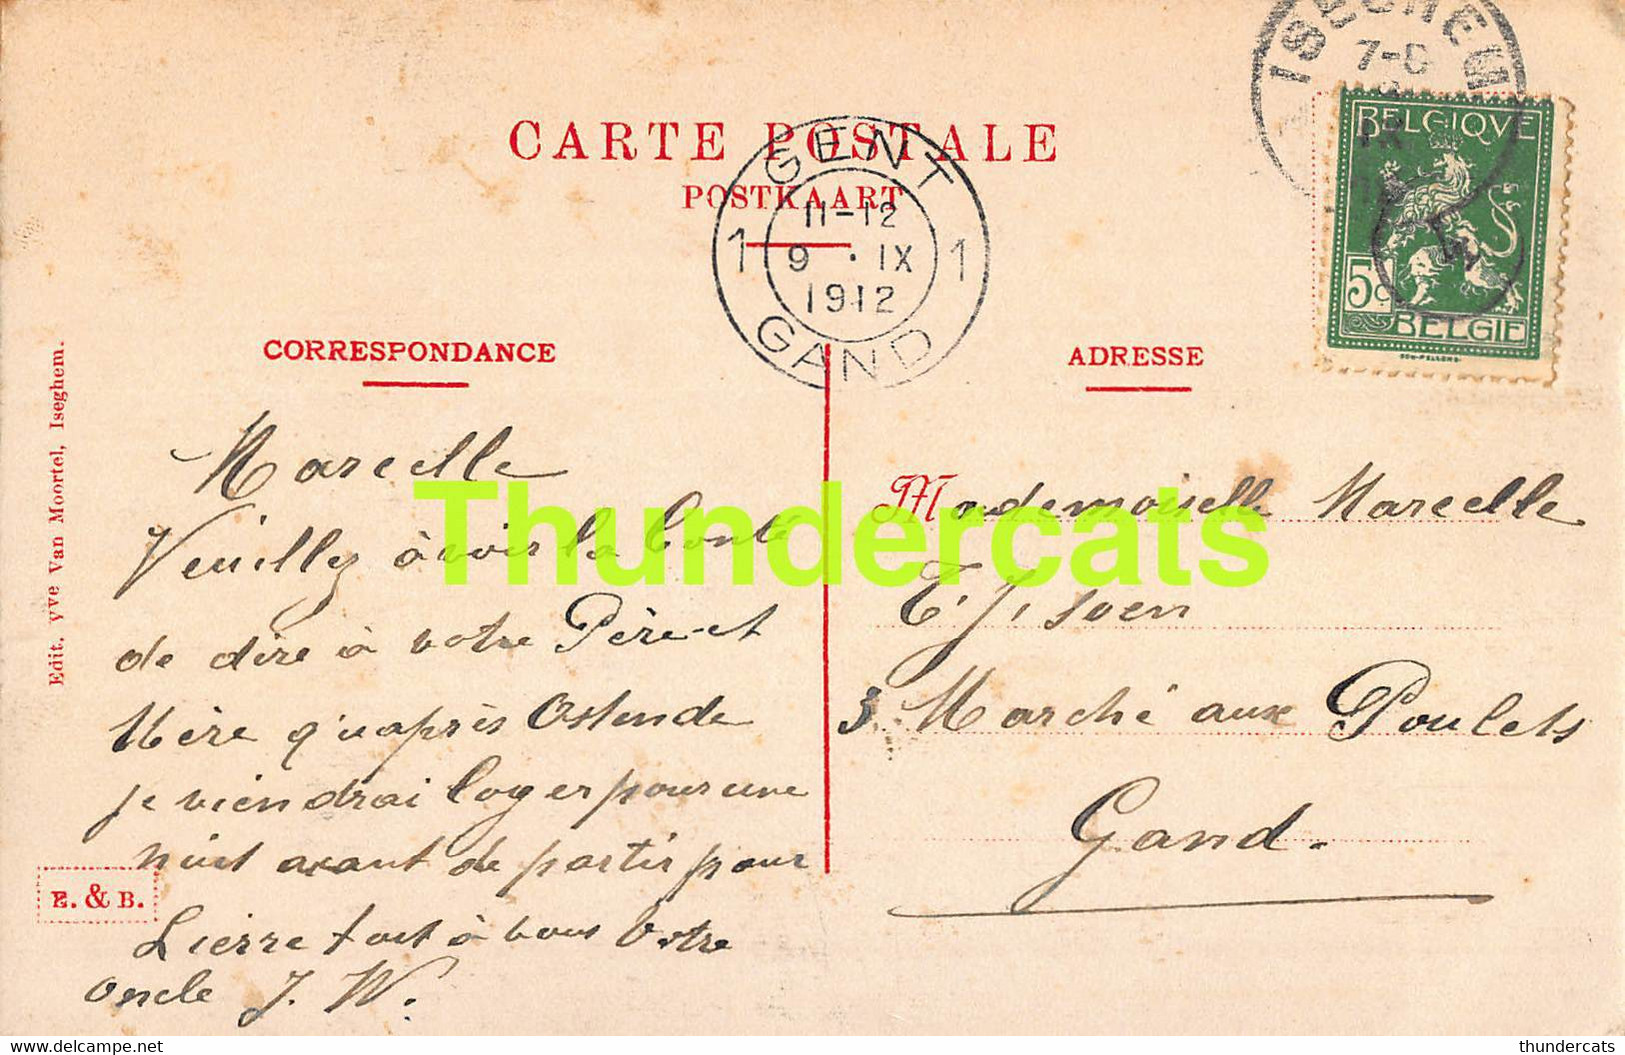 CARTE POSTALE
POSTKAART
ISEGHEM
7-8
IX
GENT
11-12
1 9 · IX 1
1912
GAND
BELGIQVE
5c
BELGIE
CORRESPONDANCE
ADRESSE
Edit. Vve Van Moortel, Iseghem.
E. & B.
Marcelle
Veuillez avoir la bonté
de dire à votre Père et
Mère qu'après Ostende
je viendrai loger pour une
nuit avant de partir pour
Lierre tout à vous Votre
oncle J. W.
Mademoiselle Marcelle
Marché aux Poulets
Gand.
Thundercats
delcampe.net
thundercats